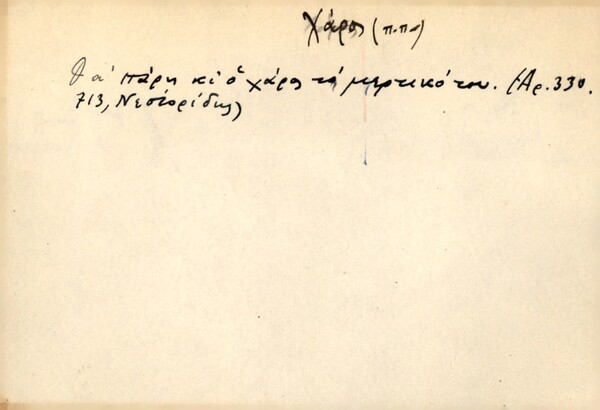 Χάρος (π.π.)
Θὰ πάρη κι ὁ χάρος τὸ μερτικό του. (Αρ. 330.
713, Νεστορίδης)